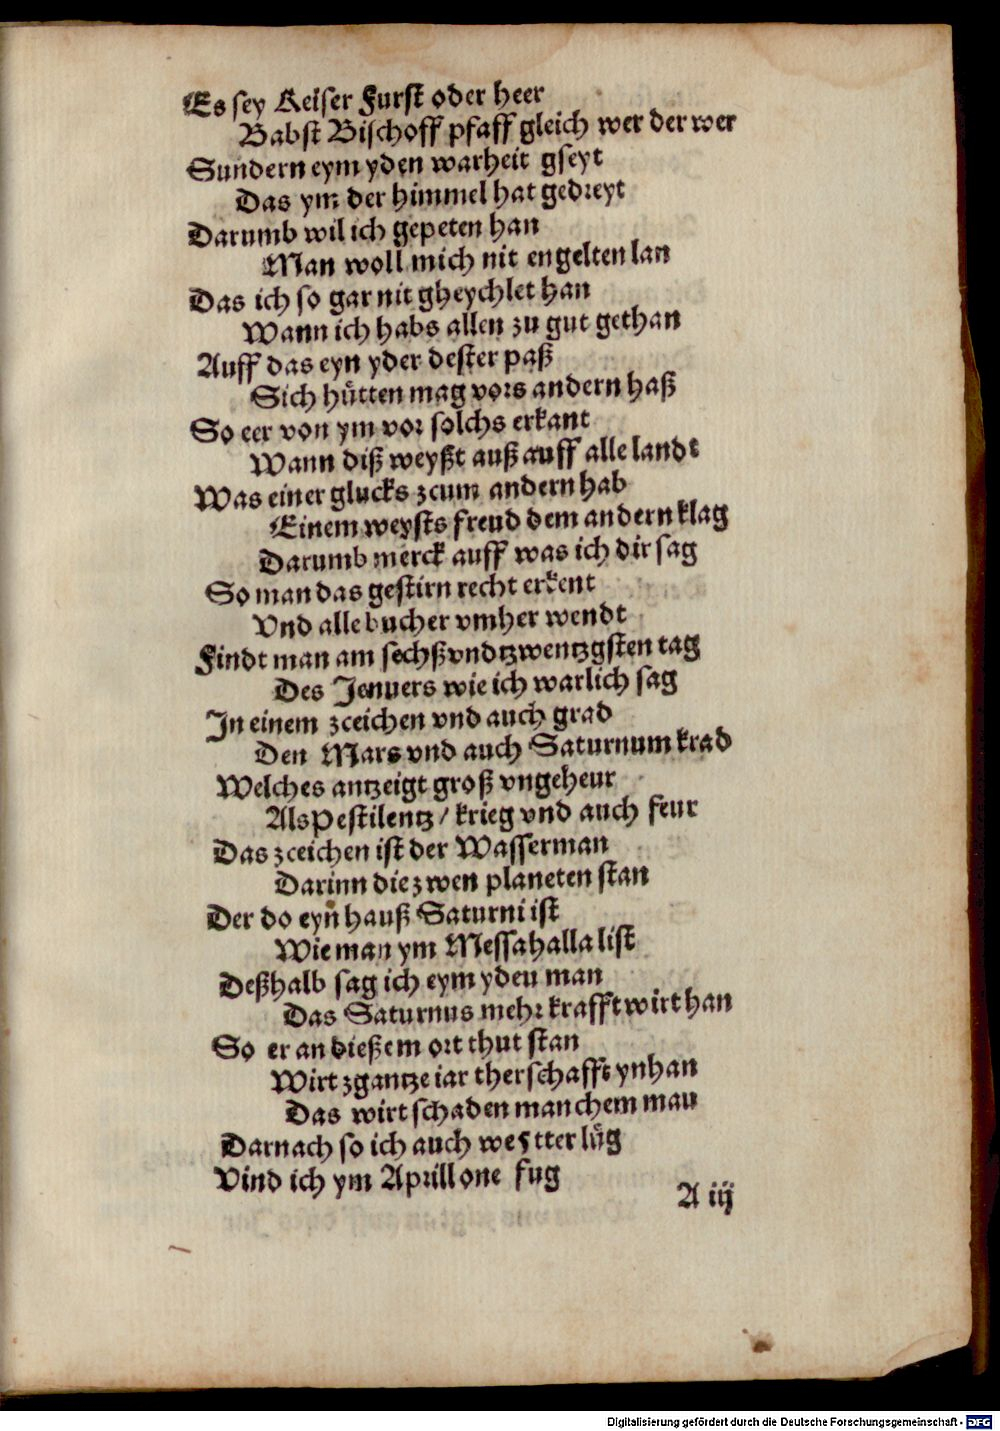 Es sey Keiser Furst oder heer
Babst Bischoff pfaff gleich wer der wer
Sundern eym yden warheit gseyt
Das ym der himmel hat gedreyt
Darumb wil ich gepeten han
Man woll mich nit engelten lan
Das ich so gar nit gheychlet han
Wann ich habs allen zu gut gethan
Auff das eyn yder dester paß
Sich huͤtten mag vors andern haß
So eer von ym vor solchs erkant
Wann diß weyßt auß auff alle landt
Was einer glucks zcum andern hab
Einem weysts freud dem andern klag
Darumb merck auff was ich dir sag
So man das gestirn recht erkent
Vnd alle bucher vmher wendt
Findt man am sechß vnd tzwentzgsten tag
Des Jenuers wie ich warlich sag
In einem zceichen vnd auch grad
Den Mars vnd auch Saturnum krad
Welches antzeigt groß vngeheur
Als Pestilentz / krieg vnd auch feur
Das zceichen ist der Wasserman
Darinn die zwen planeten stan
Der do eyn hauß Saturni ist
Wie man ym Messahalla list
Deßhalb sag ich eym yden man
Das Saturnus mehr krafft wirt han
So er an dießem ort thut stan
Wirt zgantze iar ther schafft ynhan
Das wirt schaden manchem man
Darnach so ich auch weytter luͤg
Vind ich ym Aprill one fug
A iij
Digitalisierung gefördert durch die Deutsche Forschungsgemeinschaft - DFG